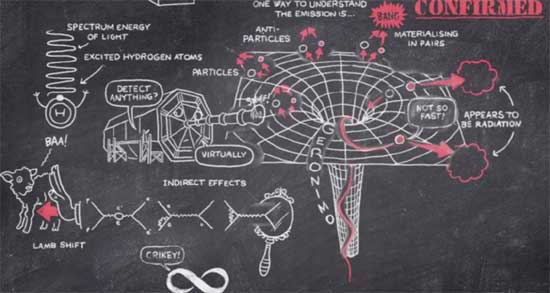 SPECTRUM ENERGY
OF LIGHT
EXCITED HYDROGEN ATOMS
H
BAA!
LAMB SHIFT
DETECT
ANYTHING?
VIRTUALLY
INDIRECT EFFECTS
CRIKEY!
ONE WAY TO UNDERSTAND
THE EMISSION IS...
ANTI-
PARTICLES
PARTICLES
BANG
CONFIRMED
MATERIALISING
IN PAIRS
NOT SO
FAST!
APPEARS TO
BE RADIATION
GERONIMO